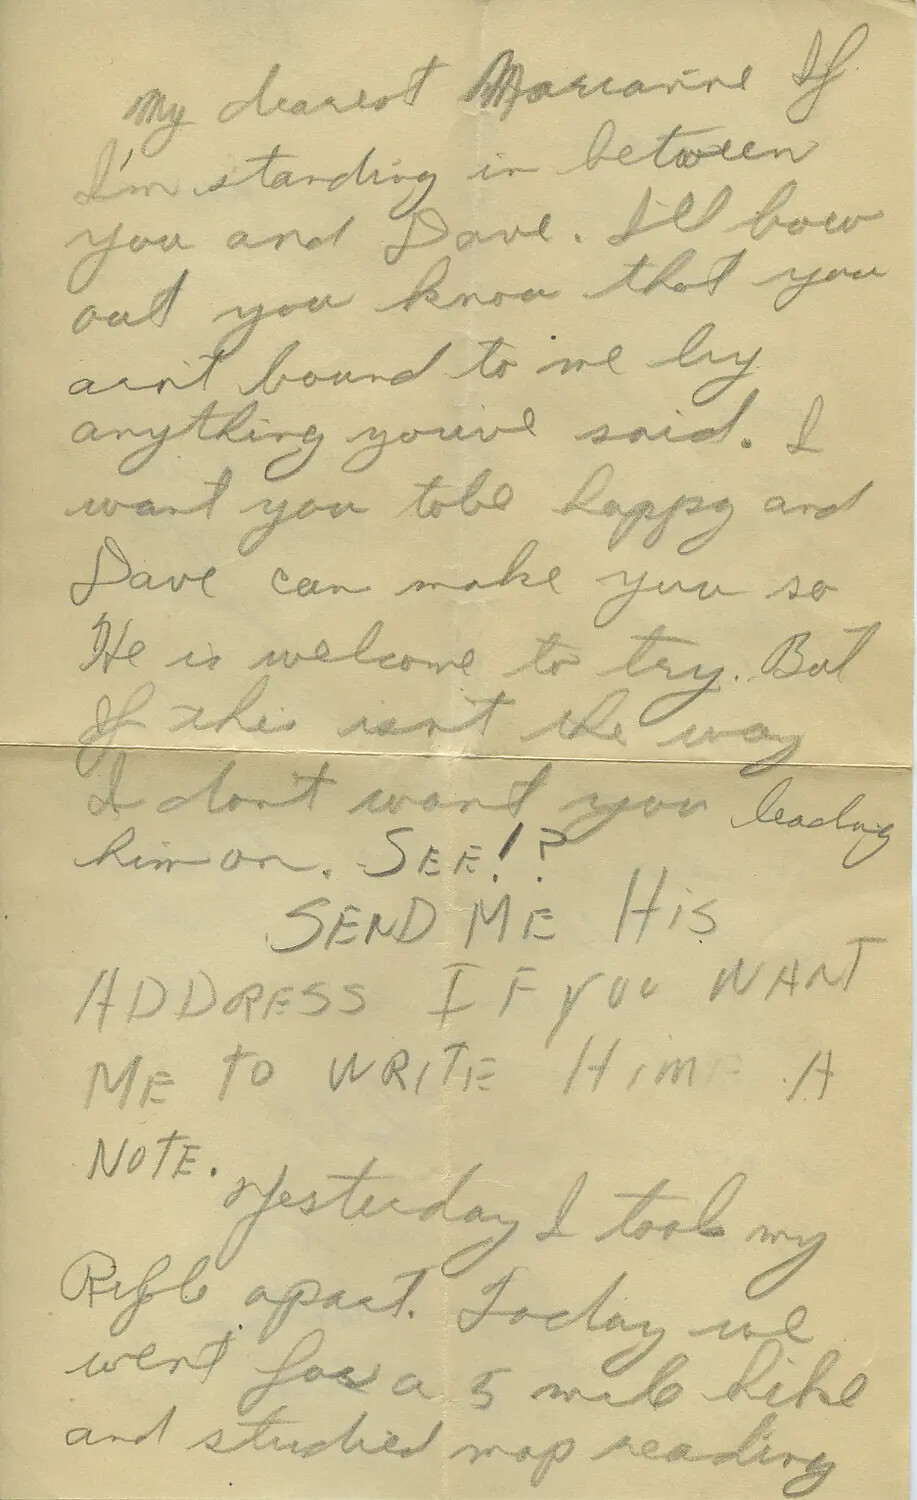 My dearest Marianne If
I'm standing in between
you and Dave. I'll bow
out you know that you
ain't bound to me by
anything youve said. I
want you tobe happy and
Dave can make you so
He is welcome to try. But
If this isn't the way
I don't want you leading
him on. SEE!?
SEND ME HIS
ADDRESS IF YOU WANT
ME TO WRITE HIM A
NOTE.
Yesterday I took my
Rifle apart. Today we
went for a 5 mile hike
and studied map reading